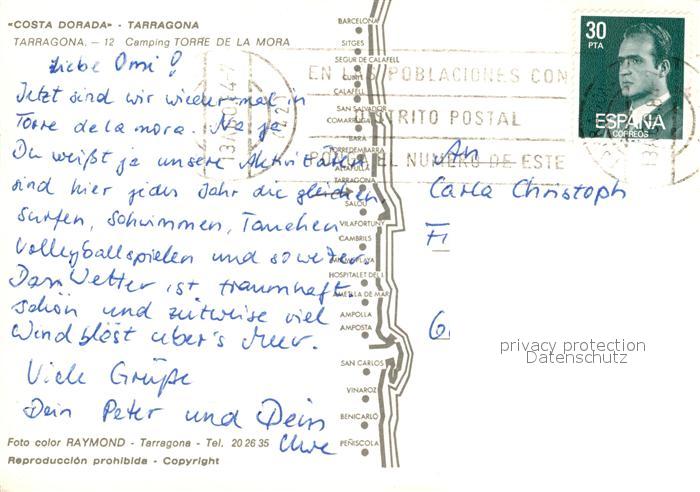 «COSTA DORADA» - TARRAGONA
TARRAGONA. – 12 Camping TORRE DE LA MORA
Liebe Omi!
Jetzt sind wir wieder mal in
Torre de la mora. Na ja
Du weißt ja unsere Aktivitäten
sind hier jedes Jahr die gleichen,
Surfen, Schwimmen, Tauchen
Volleyballspielen und so weiter.
Das Wetter ist traumhaft
schön und zeitweise viel
Wind bläst über's Meer.
Viele Grüße
Dein Peter und Dein
Uwe
Foto color RAYMOND - Tarragona - Tel. 20 26 35
Reproducción prohibida - Copyright
BARCELONA
SITGES
SEGUR DE CALAFELL
CALAFELL
SAN SALVADOR
COMARRUGA
BARA
TORREDEMBARRA
ALTAFULLA
TARRAGONA
SALOU
VILAFORTUNY
CAMBRILS
HOSPITALET DEL I.
AMETLLA DE MAR
AMPOLLA
AMPOSTA
SAN CARLOS
VINAROZ
BENICARLÓ
PEÑISCOLA
EN LAS POBLACIONES CON
DISTRITO POSTAL
PONGA EL NUMERO DE ESTE
30
PTA
ESPAÑA
CORREOS
An
Carla Christoph
privacy protection
Datenschutz